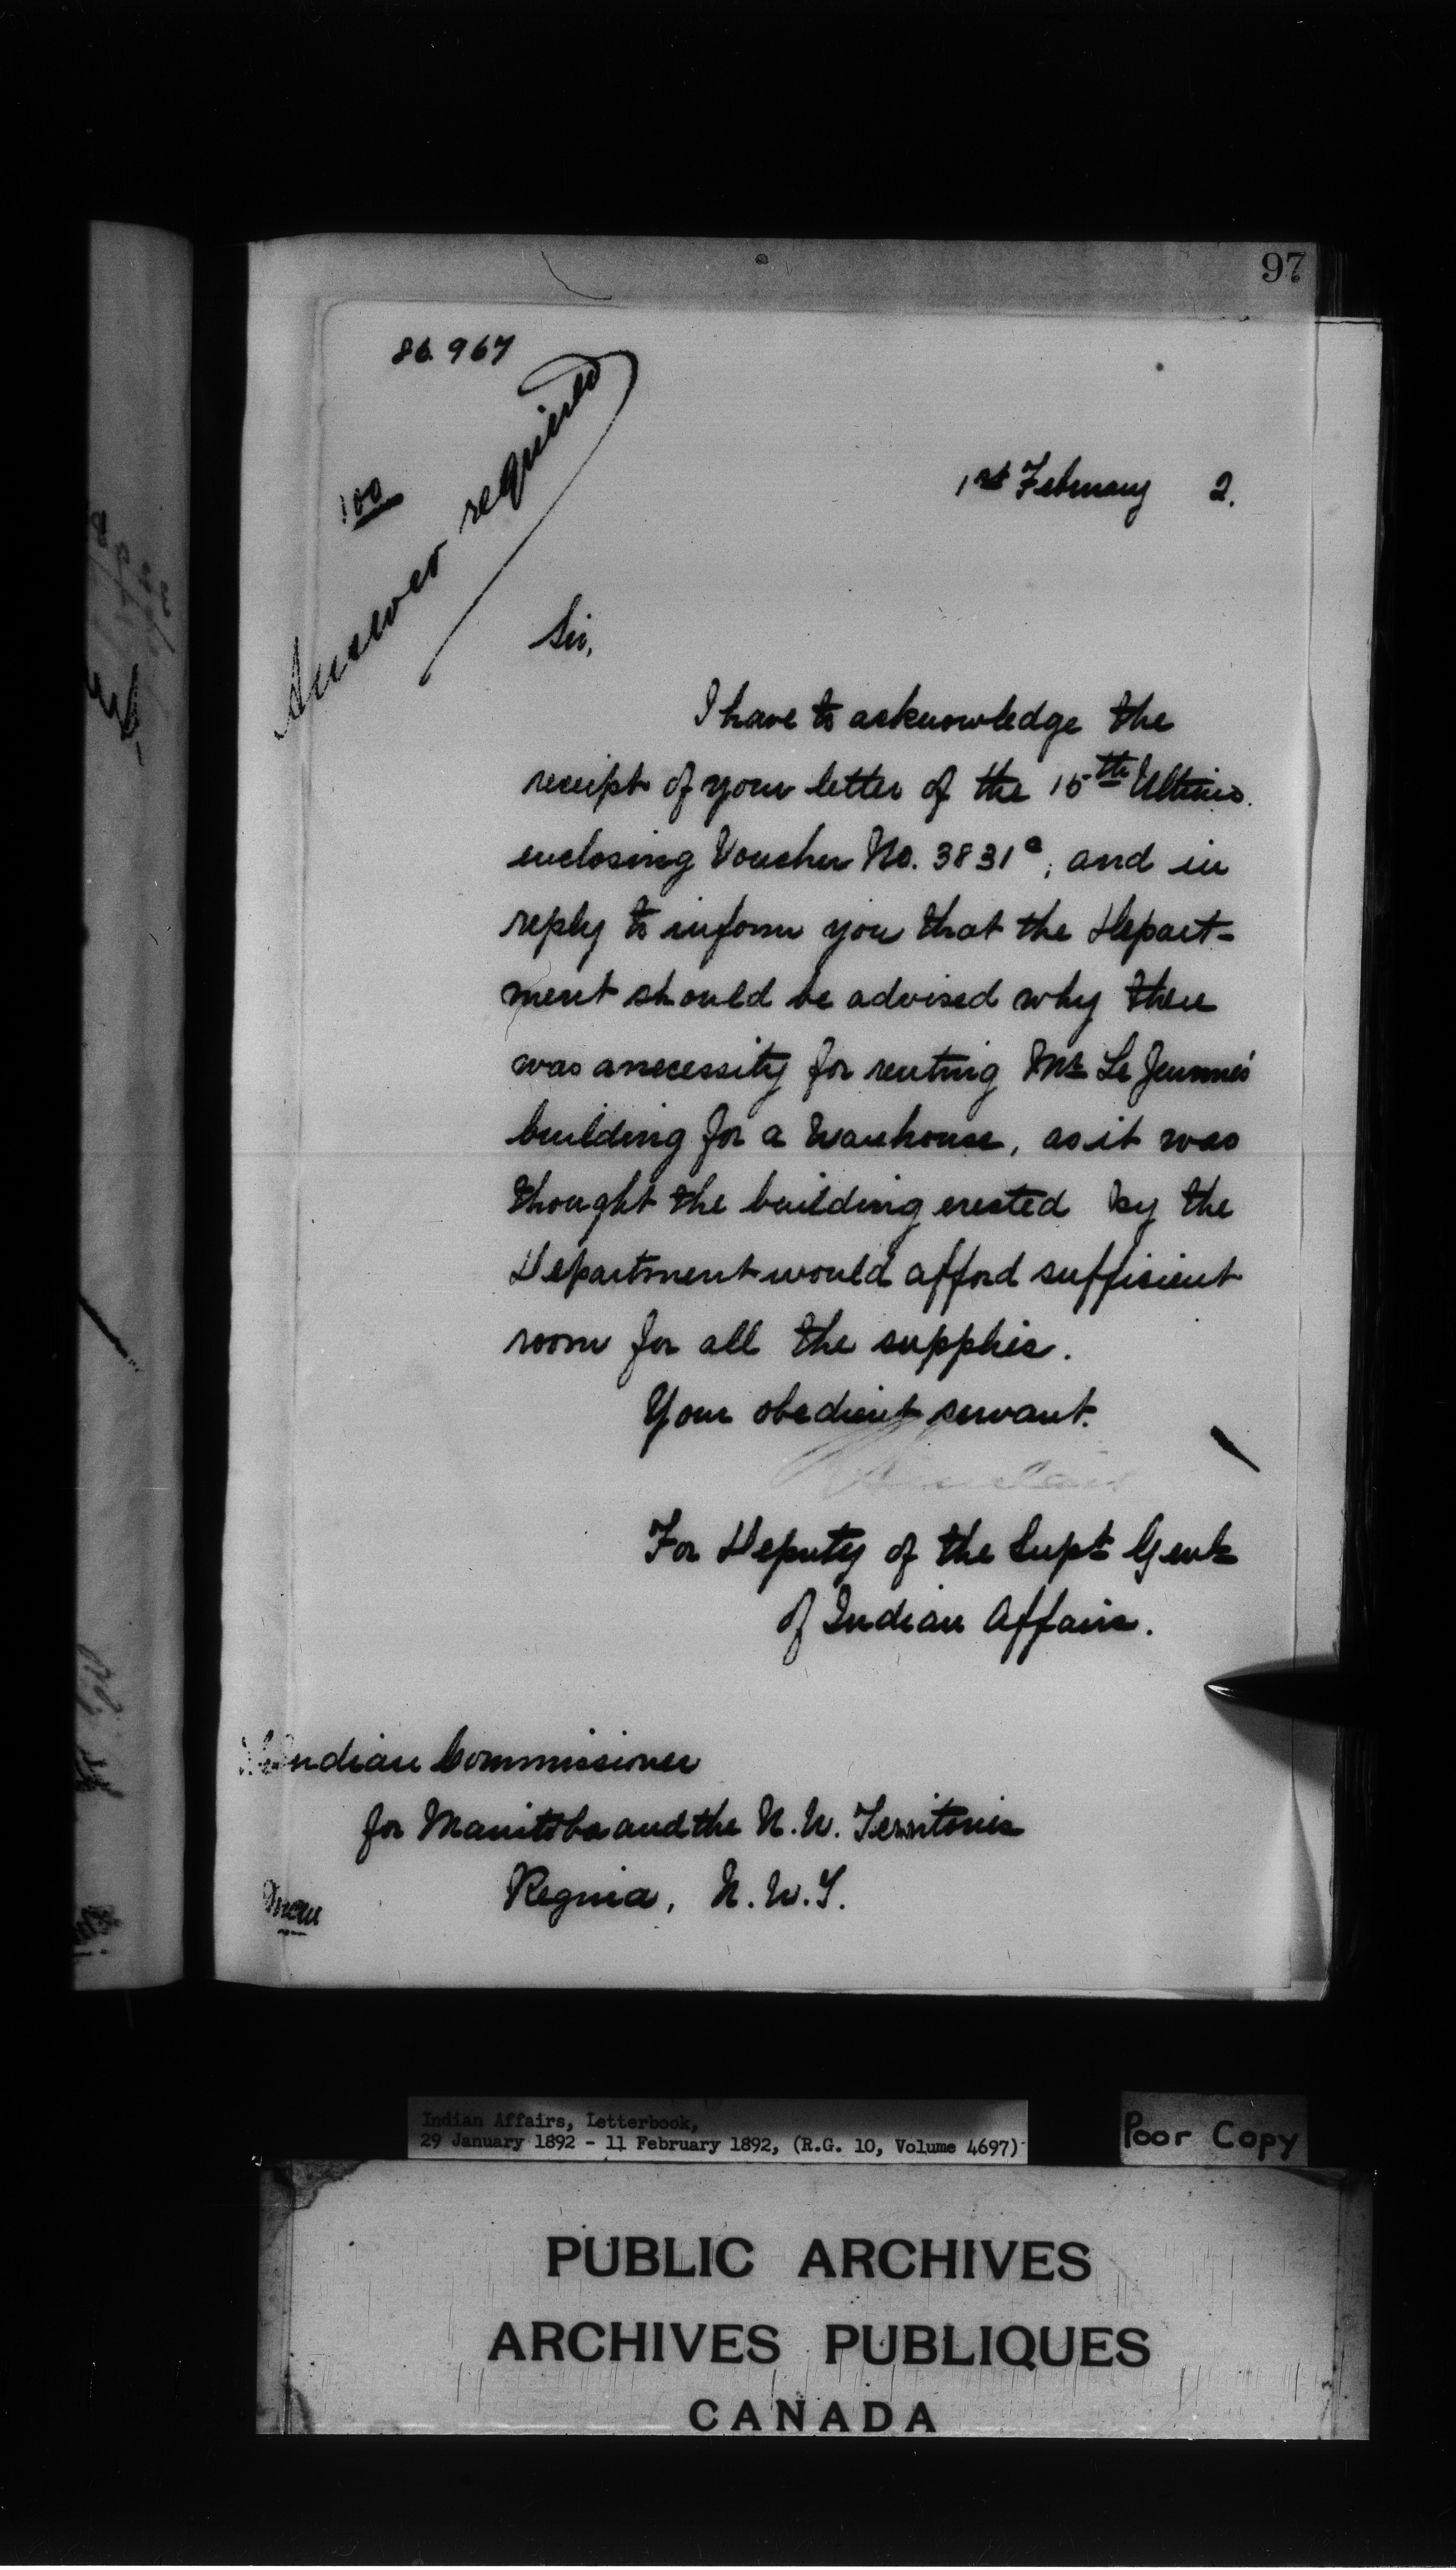 97
86.967
100
Answer required
1st February 2.
Sir,
I have to acknowledge the
receipt of your letter of the 15th Ultimo.
enclosing Voucher No. 3831a, and in
reply to inform you that the Depart-
ment should be advised why there
was a necessity for renting Mr. Le Jeunne's
building for a Warehouse, as it was
thought the building erected by the
Department would afford sufficient
room for all the supplies.
Your obedient servant.
For Deputy of the Supt Genl
of Indian Affairs.
Indian Commissioner
for Manitoba and the N.W. Territories
Regina, N.W.T.
Indian Affairs, Letterbook,
29 January 1892 - 11 February 1892, (R.G. 10, Volume 4697)
Poor Copy
PUBLIC ARCHIVES
ARCHIVES PUBLIQUES
CANADA